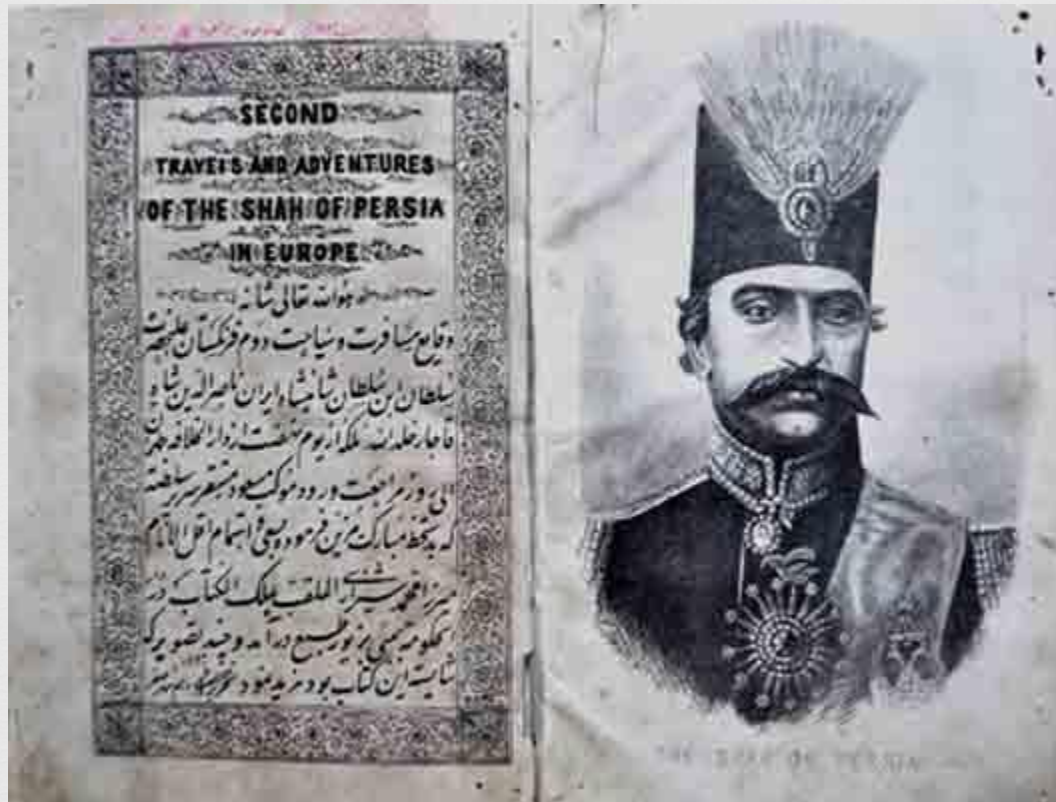 SECOND
TRAVELS AND ADVENTURES
OF THE SHAH OF PERSIA
IN EUROPE
هو الله تعالی شانه
وقایع مسافرت و سیاحت دوم فرنگستان علیحضرت
سلطان ابن سلطان شاهنشاه ایران ناصرالدین شاه
قاجار خلد الله ملکه از یوم نهضت از دارالخلافه طهران
الی روز مراجعت و ورود موکب مسعود بمستقر سریر سلطنة
که بدستخط مبارک مزین فرموده بسعی و اهتمام اقل الانام
میرزا محمد شیرازی الملقب بملک الکتاب در
الحکومه بمبئی بزیور طبع درآمد و چند تصویر که
شایسته این کتاب بود مزید نمود
THE SHAH OF PERSIA